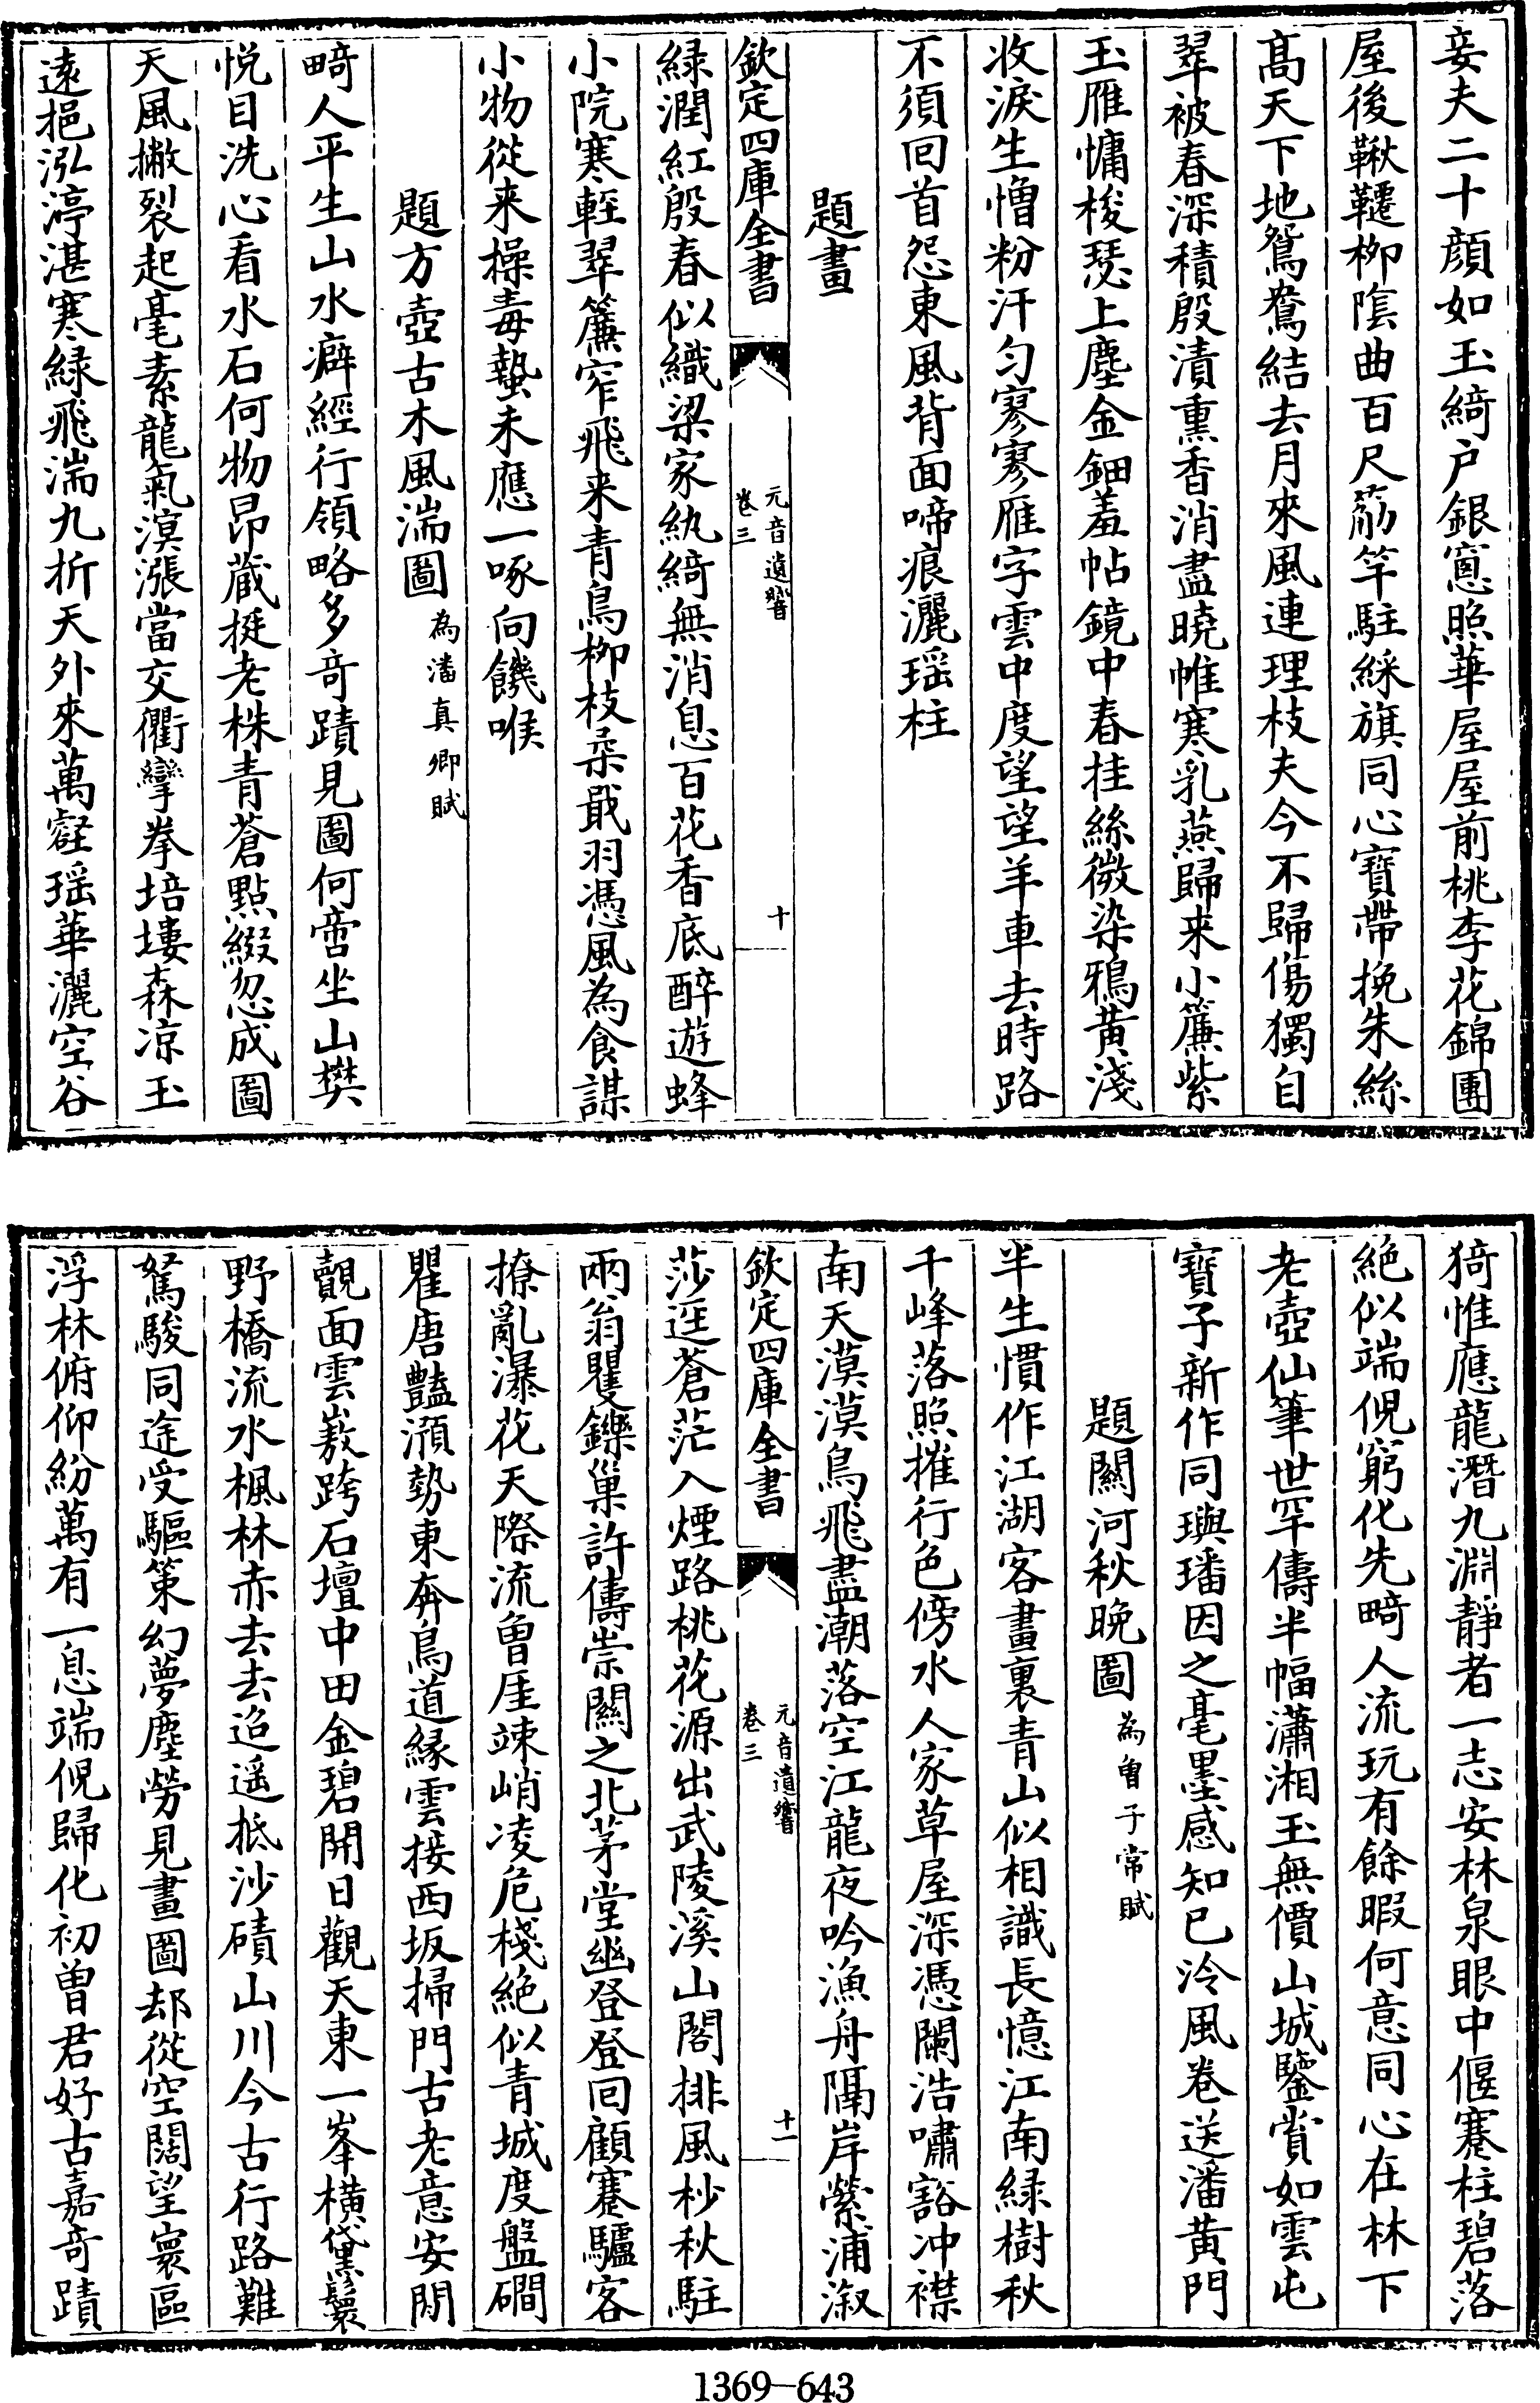 妾夫二十顔如玉綺户銀窻照華屋屋前桃李花錦團
屋後鞦韆柳隂曲百尺箹竿駐綵旗同心寶帶挽朱絲
髙天下地鴛鴦結去月來風連理枝夫今不歸傷獨自
翠被春深積殷漬熏香消盡曉帷寒乳燕歸來小簾紫
玉雁慵梭瑟上塵金鈿羞帖鏡中春挂絲微染鴉黄淺
收淚生憎粉汗匀寥寥雁字雲中度望望羊車去時路
不須回首怨東風背面啼痕灑瑶柱
題畫
欽定四庫全書
元音遺響
卷三
十
緑潤紅殷春似織梁家紈綺無消息百花香底醉遊蜂
小院寒輕翠簾窄飛来青鳥柳枝朶戢羽憑風為食謀
小物從来操毒蟄未應一啄向饑喉
題方壺古木風湍圖為潘真卿賦
畸人平生山水癖經行領略多奇蹟見圖何啻坐山樊
悦目洗心看水石何物昂藏挺老株青蒼㸃綴忽成圖
天風撇裂起毫素龍氣溟漲當交衢攣拳培塿森凉玉
逺挹泓渟湛寒緑飛湍九折天外來萬壑瑶華灑空谷
猗惟應龍潛九淵靜者一志安林泉眼中偃蹇柱碧落
絶似端倪窮化先畸人流玩有餘暇何意同心在林下
老壺仙筆世罕儔半幅瀟湘玉無價山城鑒賞如雲屯
寶子新作同璵璠因之毫墨感知已泠風卷送潘黄門
題闗河秋晚圖為曾子常賦
半生慣作江湖客畫裏青山似相識長憶江南緑樹秋
千峰落照摧行色傍水人家草屋深憑闌浩嘯豁冲襟
南天漠漠鳥飛盡潮落空江龍夜吟漁舟隔岸縈浦溆
欽定四庫全書
元音遺響
卷三
十一
莎逕蒼茫入煙路桃花源出武陵溪山閣排風杪秋駐
兩翁矍鑠巢許儔崇闗之北茅堂幽登登回顧蹇驢客
撩亂瀑花天際流曾厓竦峭凌危棧絶似青城度盤磵
瞿唐豔澦勢東奔鳥道緣雲接西坂掃門古老意安閒
覿面雲嶔跨石壇中田金碧開日觀天東一峯横黛鬟
野橋流水楓林赤去去迢遥抵沙磧山川今古行路難
駑駿同途受驅策幻夢塵勞見畫圖却從空闊望寰區
浮林俯仰紛萬有一息端倪歸化初曾君好古嘉奇蹟
1369—643